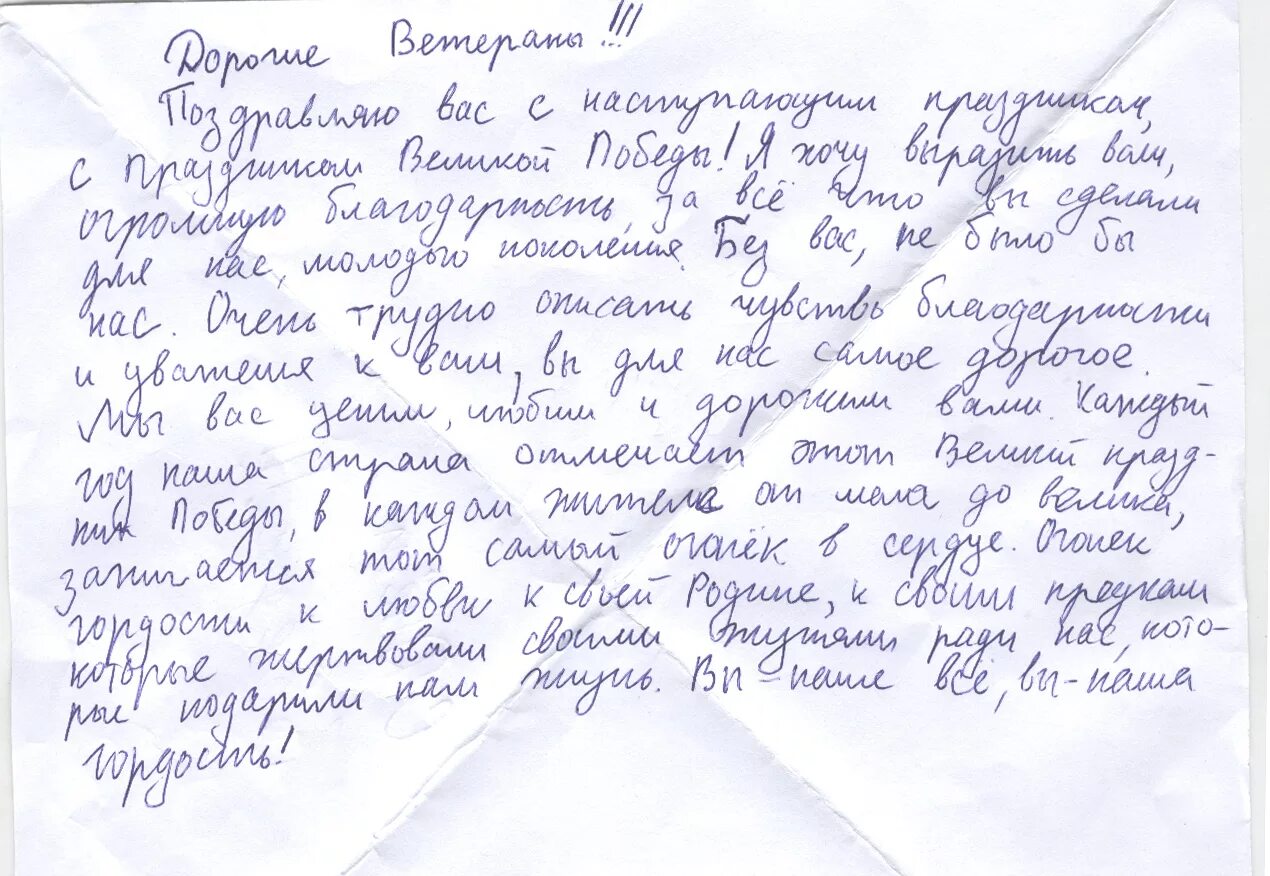 Дорогие Ветераны!!!
Поздравляю вас с наступающим праздником,
с Праздником Великой Победы! Я хочу выразить вам,
огромную благодарность, за всё что вы сделали
для нас, молодого поколения. Без вас, не было бы
нас. Очень трудно описать чувство благодарности
и уважения к вам, вы для нас самое дорогое.
Мы вас ценим, любим и дорожим вами. Каждый
год наша страна отмечает этот Великий празд-
ник Победы, в каждом жителе от мала до велика,
зажигается тот самый огонёк в сердце. Огонек
гордости и любви к своей Родине, к своим предкам
которые жертвовали своими жизнями ради нас, кото-
рые подарили нам жизнь. Вы - наше всё, вы - наша
гордость!